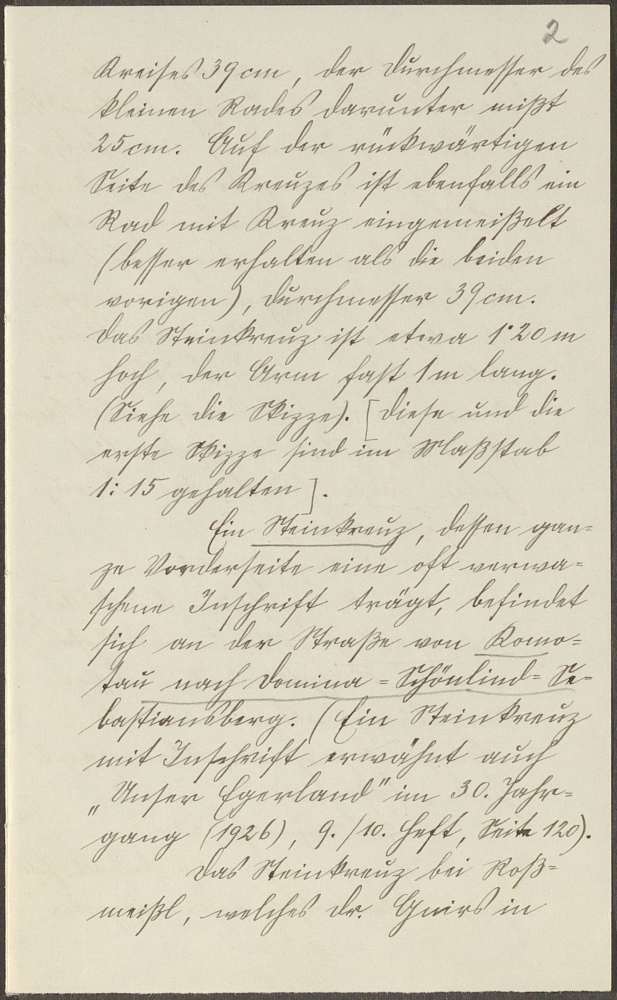 2
Kreises 39 cm, der Durchmesser des
kleinen Rades darunter mißt
25 cm. Auf der rückwärtigen
Seite des Kreuzes ist ebenfalls ein
Rad mit Kreuz eingemeißelt
(besser erhalten als die beiden
vorigen), Durchmesser 39 cm.
Das Steinkreuz ist etwa 1·20 m
hoch, der Arm fast 1 m lang.
(Siehe die Skizze). [Diese und die
erste Skizze sind im Maßstab
1:15 gehalten].
Ein Steinkreuz, dessen gan=
ze Vorderseite eine oft verwa=
schene Inschrift trägt, befindet
sich an der Straße von Komo=
tau nach Domina=Schönlind=Se=
bastiansberg. (Ein Steinkreuz
mit Inschrift erwähnt auch
„Unser Egerland" im 30. Jahr=
gang (1926), 9./10. Heft, Seite 120).
Das Steinkreuz bei Roß=
meißl, welches Dr. Gnirs in